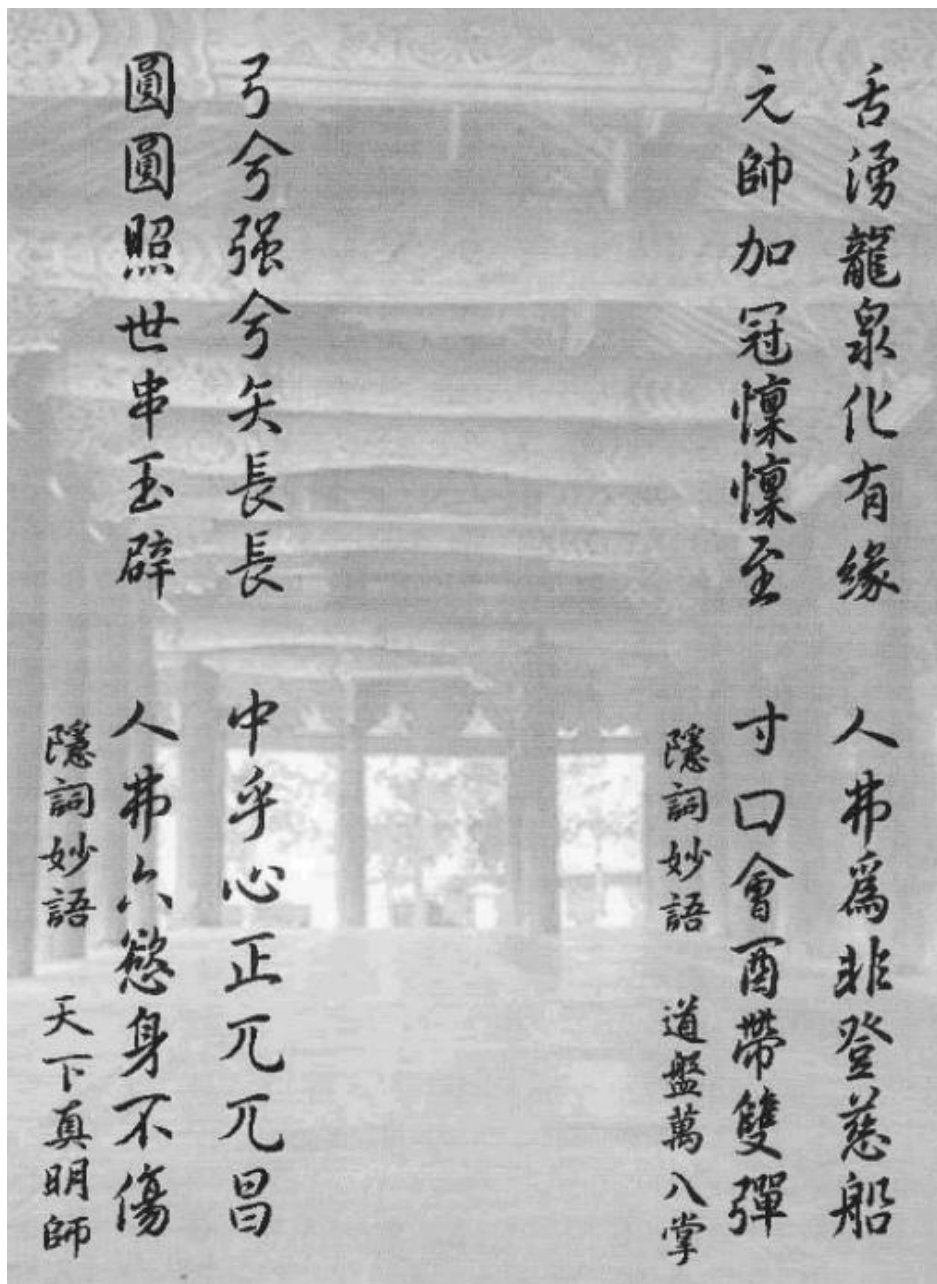 舌湧龍泉化有緣
人弗爲非登慈船
元帥加冠懍懍至
寸口會酉帶雙彈
隱詞妙語 道盤萬八掌
弓兮强兮矢長長
中乎心正兀兀昌
圓圓照世串玉辟
人弗六慾身不傷
隱詞妙語 天下真明師